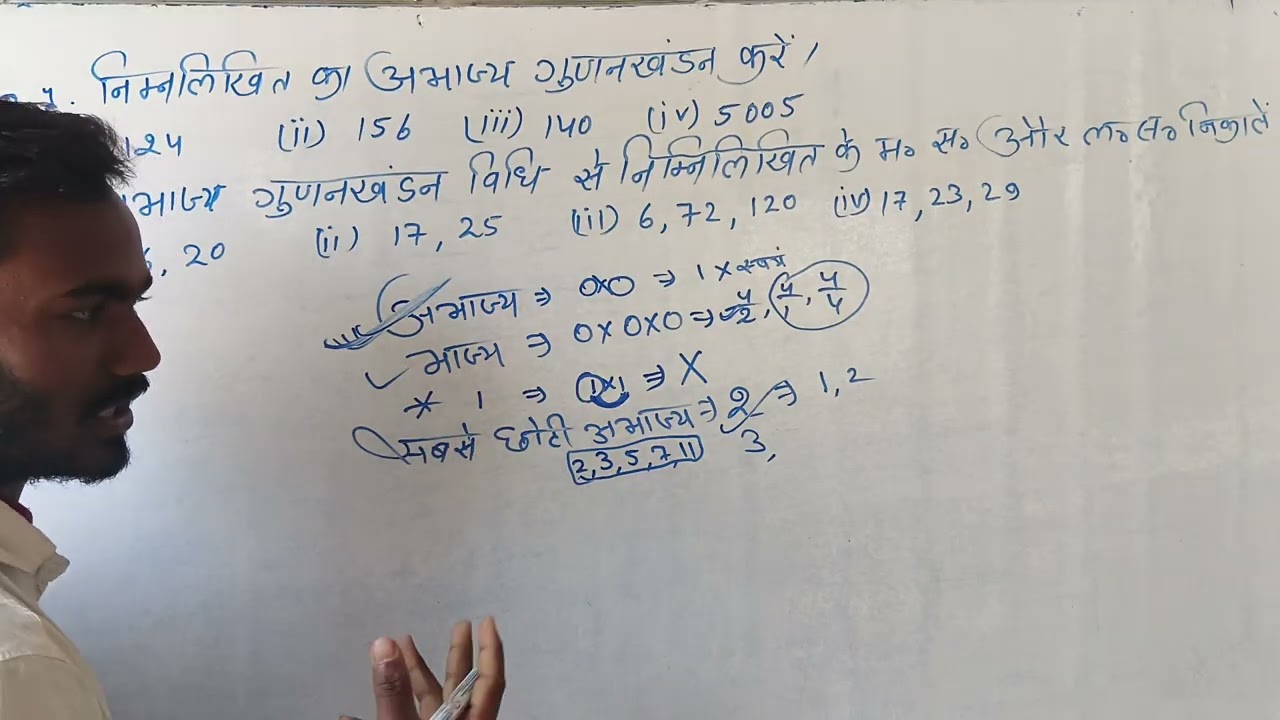 निम्नलिखित का अभाज्य गुणनखंडन करें।
124 (ii) 156 (iii) 140 (iv) 5005
गुणनखंडन विधि से निम्निलिखित के म० स० और ल० स० निकालें
, 20 (ii) 17, 25 (iii) 6, 72, 120 (iv) 17, 23, 29
अभाज्य ⇒ 0x0 ⇒ 1 x स्वयं
भाज्य ⇒ 0x0x0 ⇒ 4/2, 4/1, 4/4
* 1 ⇒ 1x1 ⇒ X
सबसे छोटी अभाज्य ⇒ 2 ⇒ 1, 2
2,3,5,7,11 3,